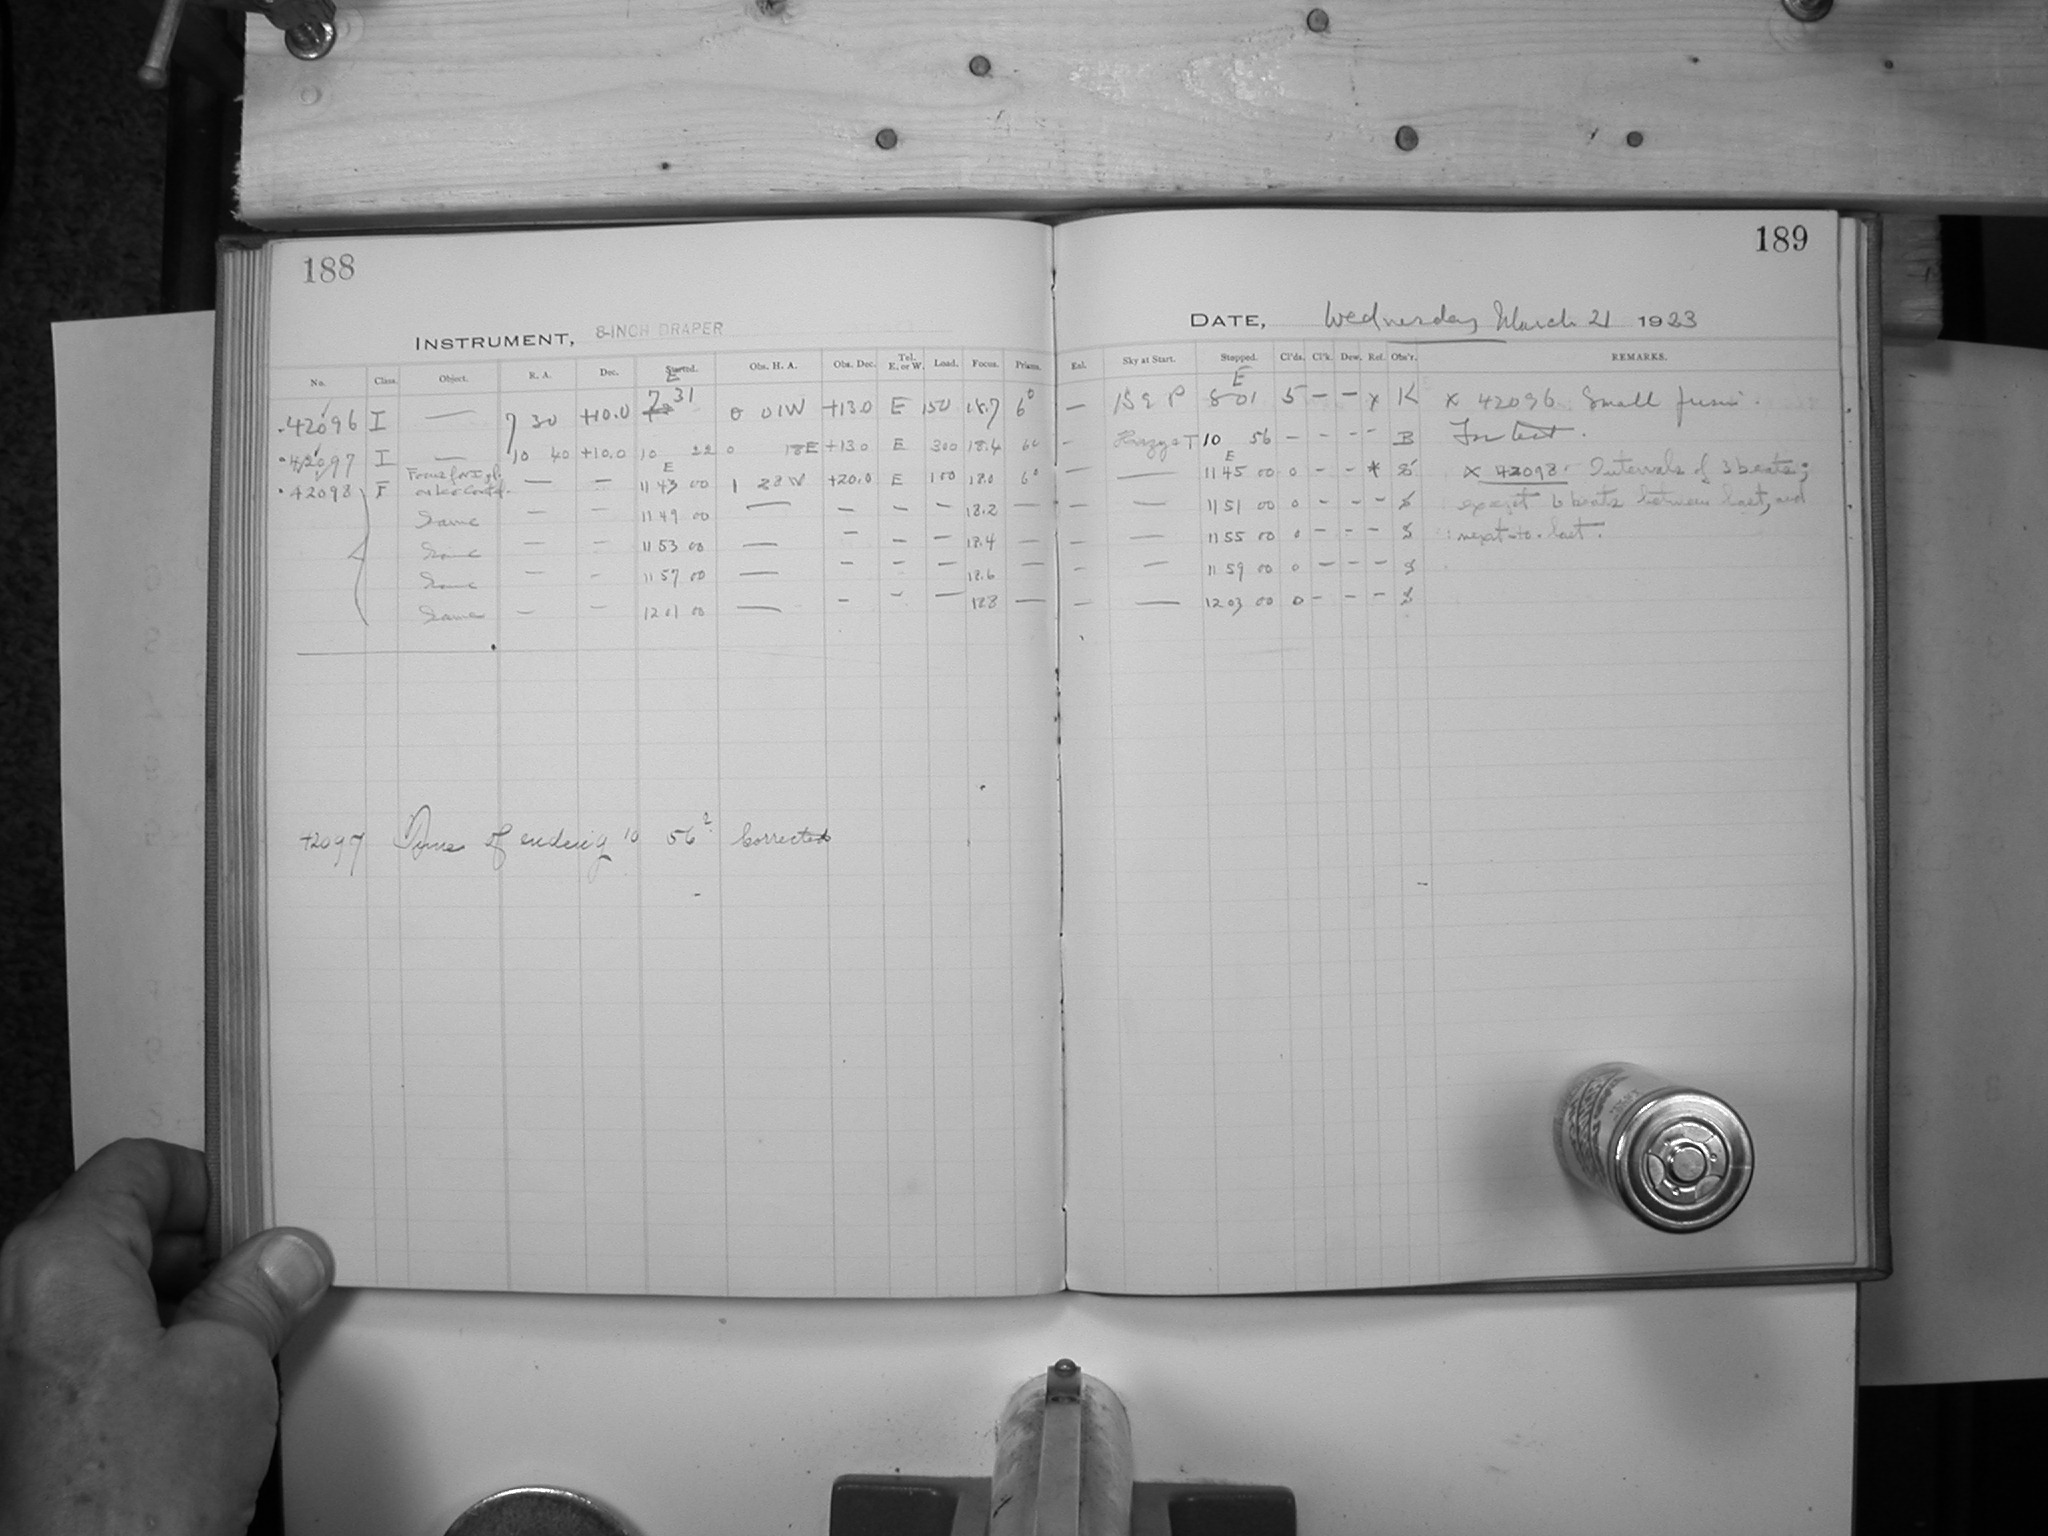 188
INSTRUMENT, 8-INCH DRAPER
No. Class. Object. R. A. Dec. Started. Obs. H. A. Obs. Dec. Tel. E. or W. Load. Focus. Prisms.
E
42096 I — 7 30 +10.0 7 31 0 01W +13.0 E 150 18.7 6°
42097 I — 10 40 +10.0 10 22 0 18E +13.0 E 300 18.4 6°
E
42098 F Focus for — — 11 43 00 1 28W +20.0 E 100 18.0 6°
Same — — 11 49 00 — — — — 18.2 —
Same — — 11 53 00 — — — — 18.4 —
Same — — 11 57 00 — — — — 18.6 —
Same — — 12 01 00 — — — — 18.8 —
42097 Time of ending 10 56? Corrected
189
DATE, Wednesday March 21 1923
Enl. Sky at Start. Stopped. Cl'ds. Cl'k. Dew. Ref. Obs'r. REMARKS.
E
— 8 01 5 — — x K x 42096 Small
— 10 56 — — — — B test.
E
— — 11 45 00 0 — — * S x 42098 Intervals of 3 beats;
— — 11 51 00 0 — — — S except 6 beats between last, and
— — 11 55 00 0 — — — S next-to-last.
— — 11 59 00 0 — — — S
— — 12 03 00 0 — — — S